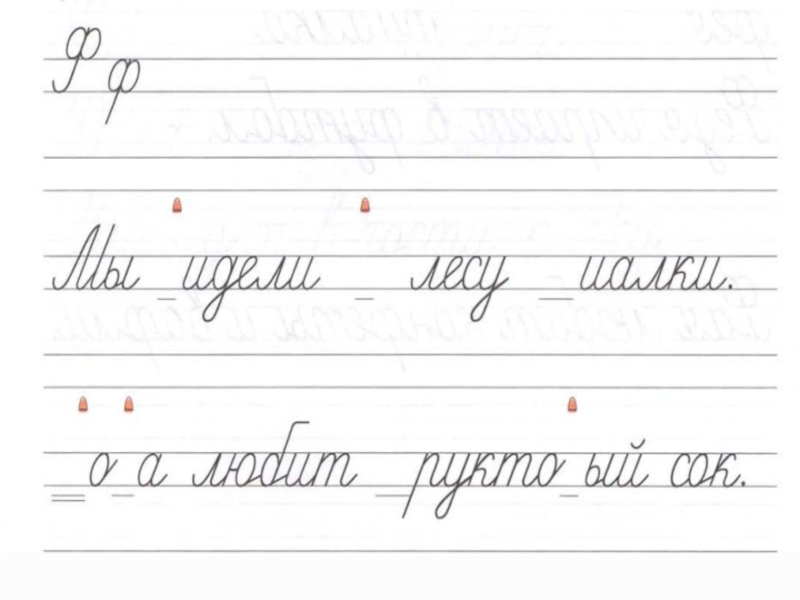 Ф ф
Мы _идели _ лесу _иалки.
_о_а любит _рукто_ый сок.